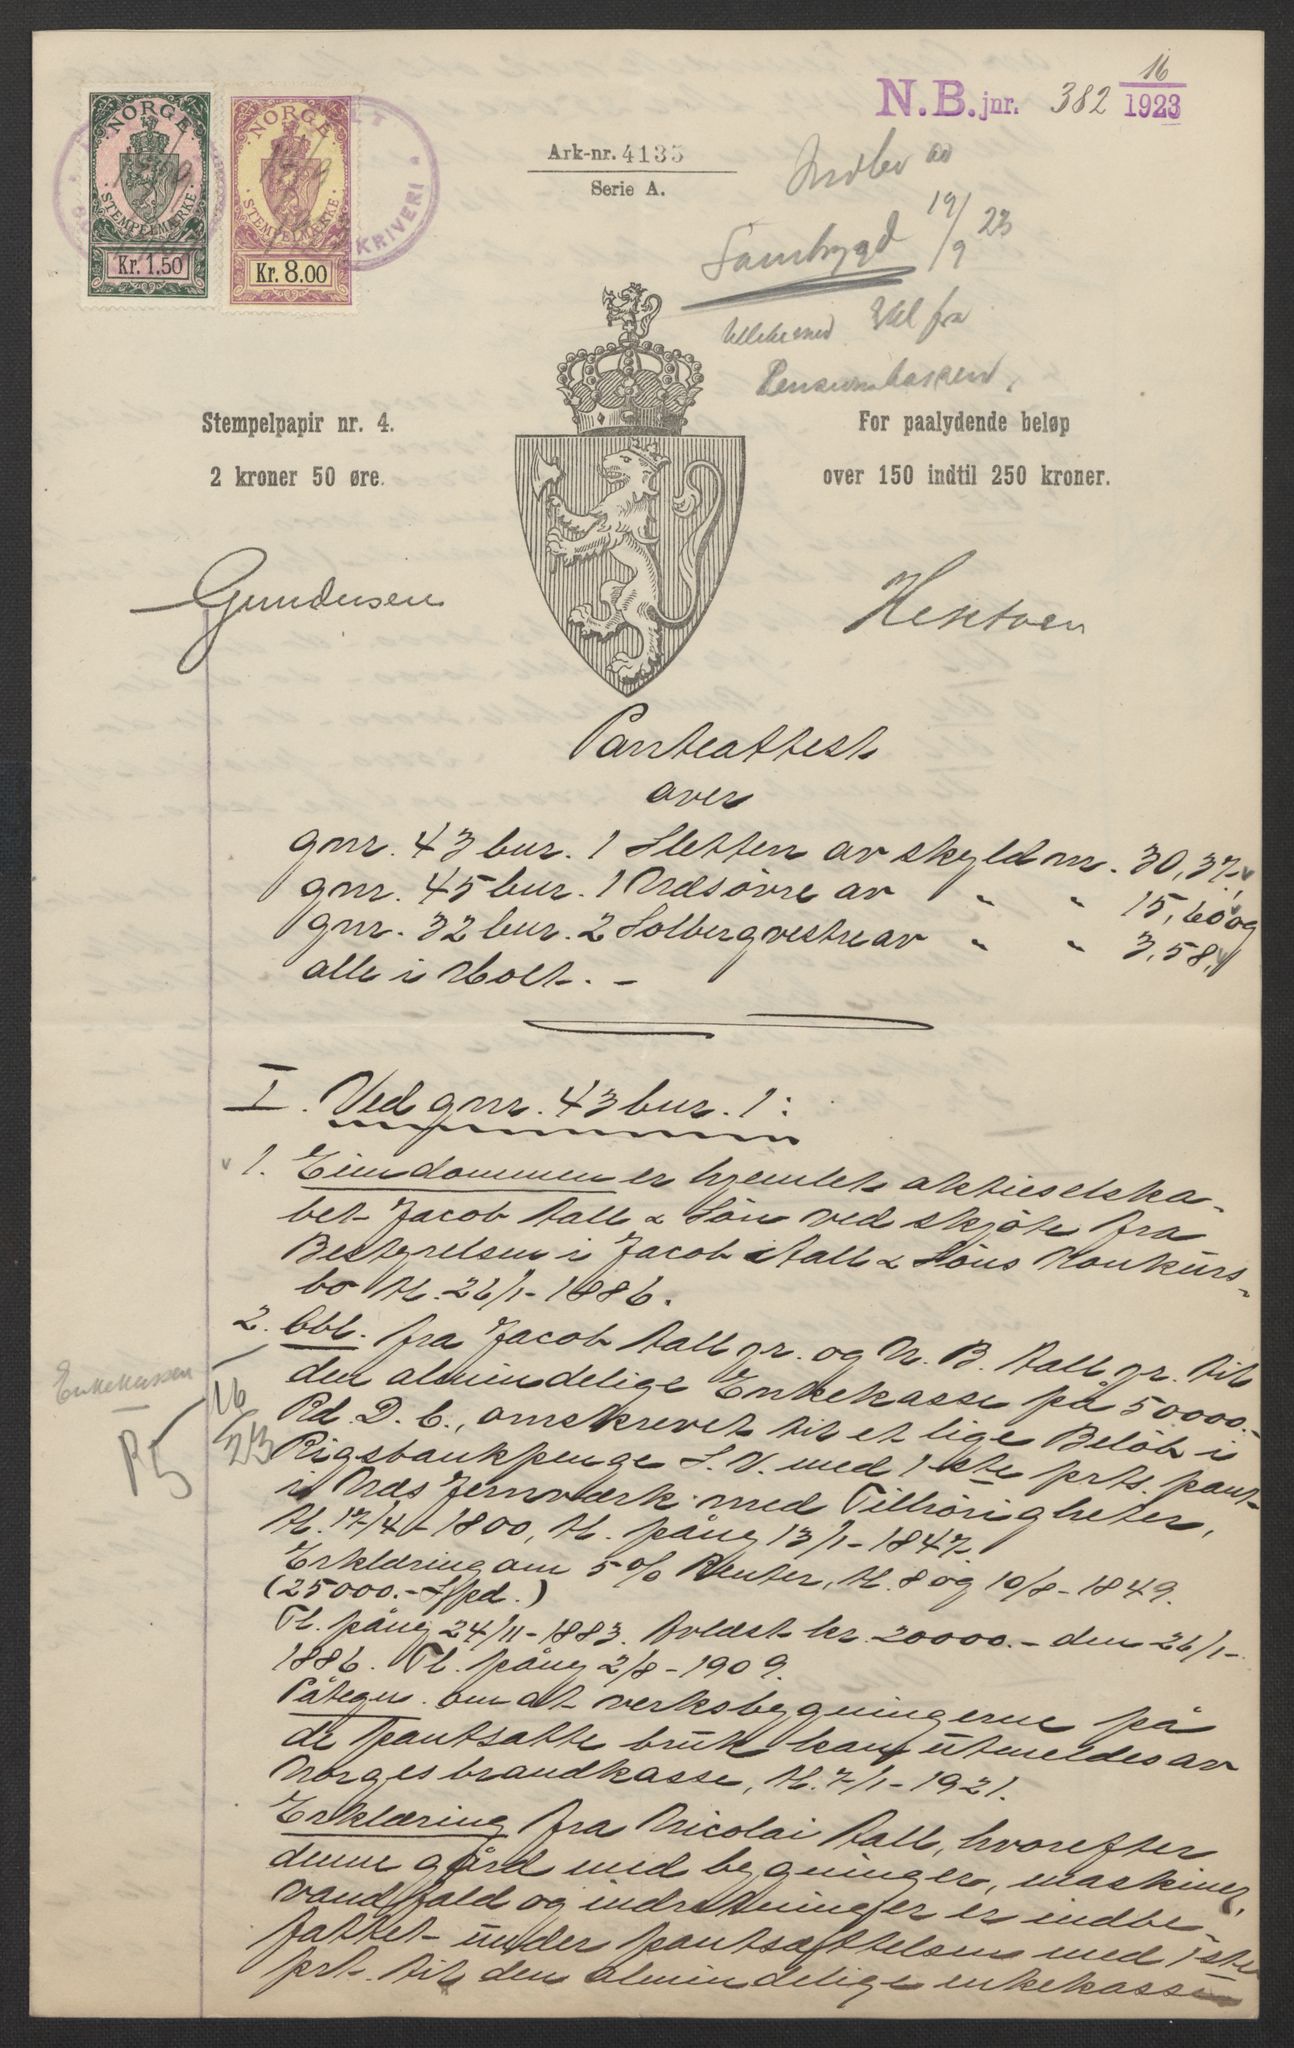 N.B. jnr. 382 16/1923
NORGE
STEMPELMÆRKE
Kr. 1.50
NORGE
STEMPELMÆRKE
Kr. 8.00
SKRIVERI
Ark-nr. 4135
Serie A.
Indlev av
Sambygd 19/9 23
Ekl fra
Pensionskassen.
Stempelpapir nr. 4.
2 kroner 50 øre.
For paalydende beløp
over 150 indtil 250 kroner.
Gundersen
Hektoen
Panteattest
over
gnr. 43 bnr. 1 Sletten av skyld m. 30,37,
gnr. 45 bnr. 1 Næsøvre av " " 15,60 og
gnr. 32 bnr. 2 Solberg vestre av " " 3,58,
alle i Holt. -
I. Ved gnr. 43 bnr. 1:
1. Eiendommen er hjemlet aktieselska-
bet Jacob Aall & Søn ved skjøte fra
Bestyrelsen i Jacob Aall & Søns Konkurs-
bo tl. 26/1-1886.
2. Obl. fra Jacob Aall jr. og N. B. Aall jr. til
den almindelige Enkekasse på 50000.-
Rd. D. C., omskrevet til et lige Beløb i
Rigsbankpenge S. V. med 1ste prts. pant
i Næs Jernværk med Tilhørigheter,
tl. 17/4-1800, tl. påny 13/1-1847.
Erklæring om 5% Renter, tl. 8 og 10/8-1849.
(25000.- Spd.)
Tl. påny 24/11-1883. Avlæst kr. 20000.- den 26/1-
1886. Tl. påny 2/8-1909.
Påtegn. om at verksbygningerne på
de pantsatte bruk kan utmeldes av
Norges brandkasse, tl. 7/1-1921.
Erklæring fra Nicolai Aall, hvorefter
denne gård med bygninger, maskiner,
vandfald og indretninger er indbe-
fattet under pantsættelsen med 1ste
prt. til den almindelige enkekasse
Enkekassen
P5 16/23